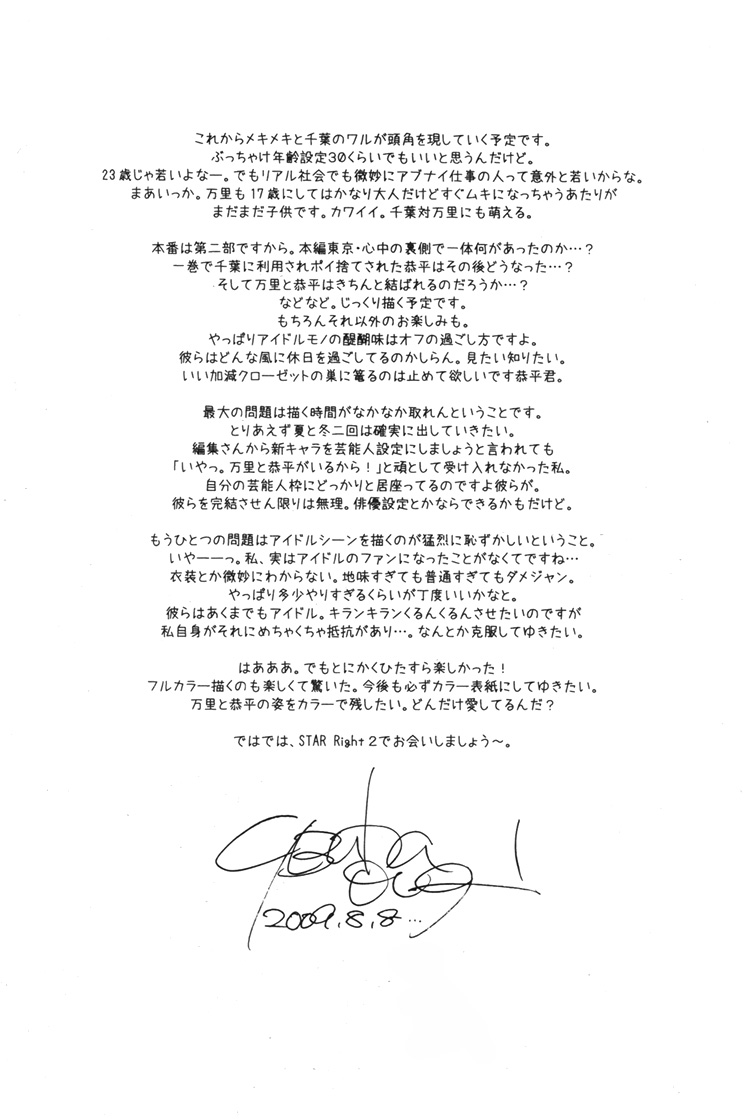 これからメキメキと千葉のワルが頭角を現していく予定です。
ぶっちゃけ年齢設定30くらいでもいいと思うんだけど。
23歳じゃ若いよなー。でもリアル社会でも微妙にアブナイ仕事の人って意外と若いからな。
まあいっか。万里も17歳にしてはかなり大人だけどすぐムキになっちゃうあたりが
まだまだ子供です。カワイイ。千葉対万里にも萌える。
本番は第二部ですから。本編東京・心中の裏側で一体何があったのか…？
一巻で千葉に利用されポイ捨てされた恭平はその後どうなった…？
そして万里と恭平はきちんと結ばれるのだろうか…？
などなど。じっくり描く予定です。
もちろんそれ以外のお楽しみも。
やっぱりアイドルモノの醍醐味はオフの過ごし方ですよ。
彼らはどんな風に休日を過ごしてるのかしらん。見たい知りたい。
いい加減クローゼットの巣に篭るのは止めて欲しいです恭平君。
最大の問題は描く時間がなかなか取れんということです。
とりあえず夏と冬二回は確実に出していきたい。
編集さんから新キャラを芸能人設定にしましょうと言われても
「いやっ。万里と恭平がいるから！」と頑として受け入れなかった私。
自分の芸能人枠にどっかりと居座ってるのですよ彼らが。
彼らを完結させん限りは無理。俳優設定とかならできるかもだけど。
もうひとつの問題はアイドルシーンを描くのが猛烈に恥ずかしいということ。
いやーーっ。私、実はアイドルのファンになったことがなくてですね…
衣装とか微妙にわからない。地味すぎても普通すぎてもダメジャン。
やっぱり多少やりすぎるくらいが丁度いいかなと。
彼らはあくまでもアイドル。キランキランくるんくるんさせたいのですが
私自身がそれにめちゃくちゃ抵抗があり…。なんとか克服してゆきたい。
はあああ。でもとにかくひたすら楽しかった！
フルカラー描くのも楽しくて驚いた。今後も必ずカラー表紙にしてゆきたい。
万里と恭平の姿をカラーで残したい。どんだけ愛してるんだ？
ではでは、STAR Right 2でお会いしましょう〜。
2009.8.8…